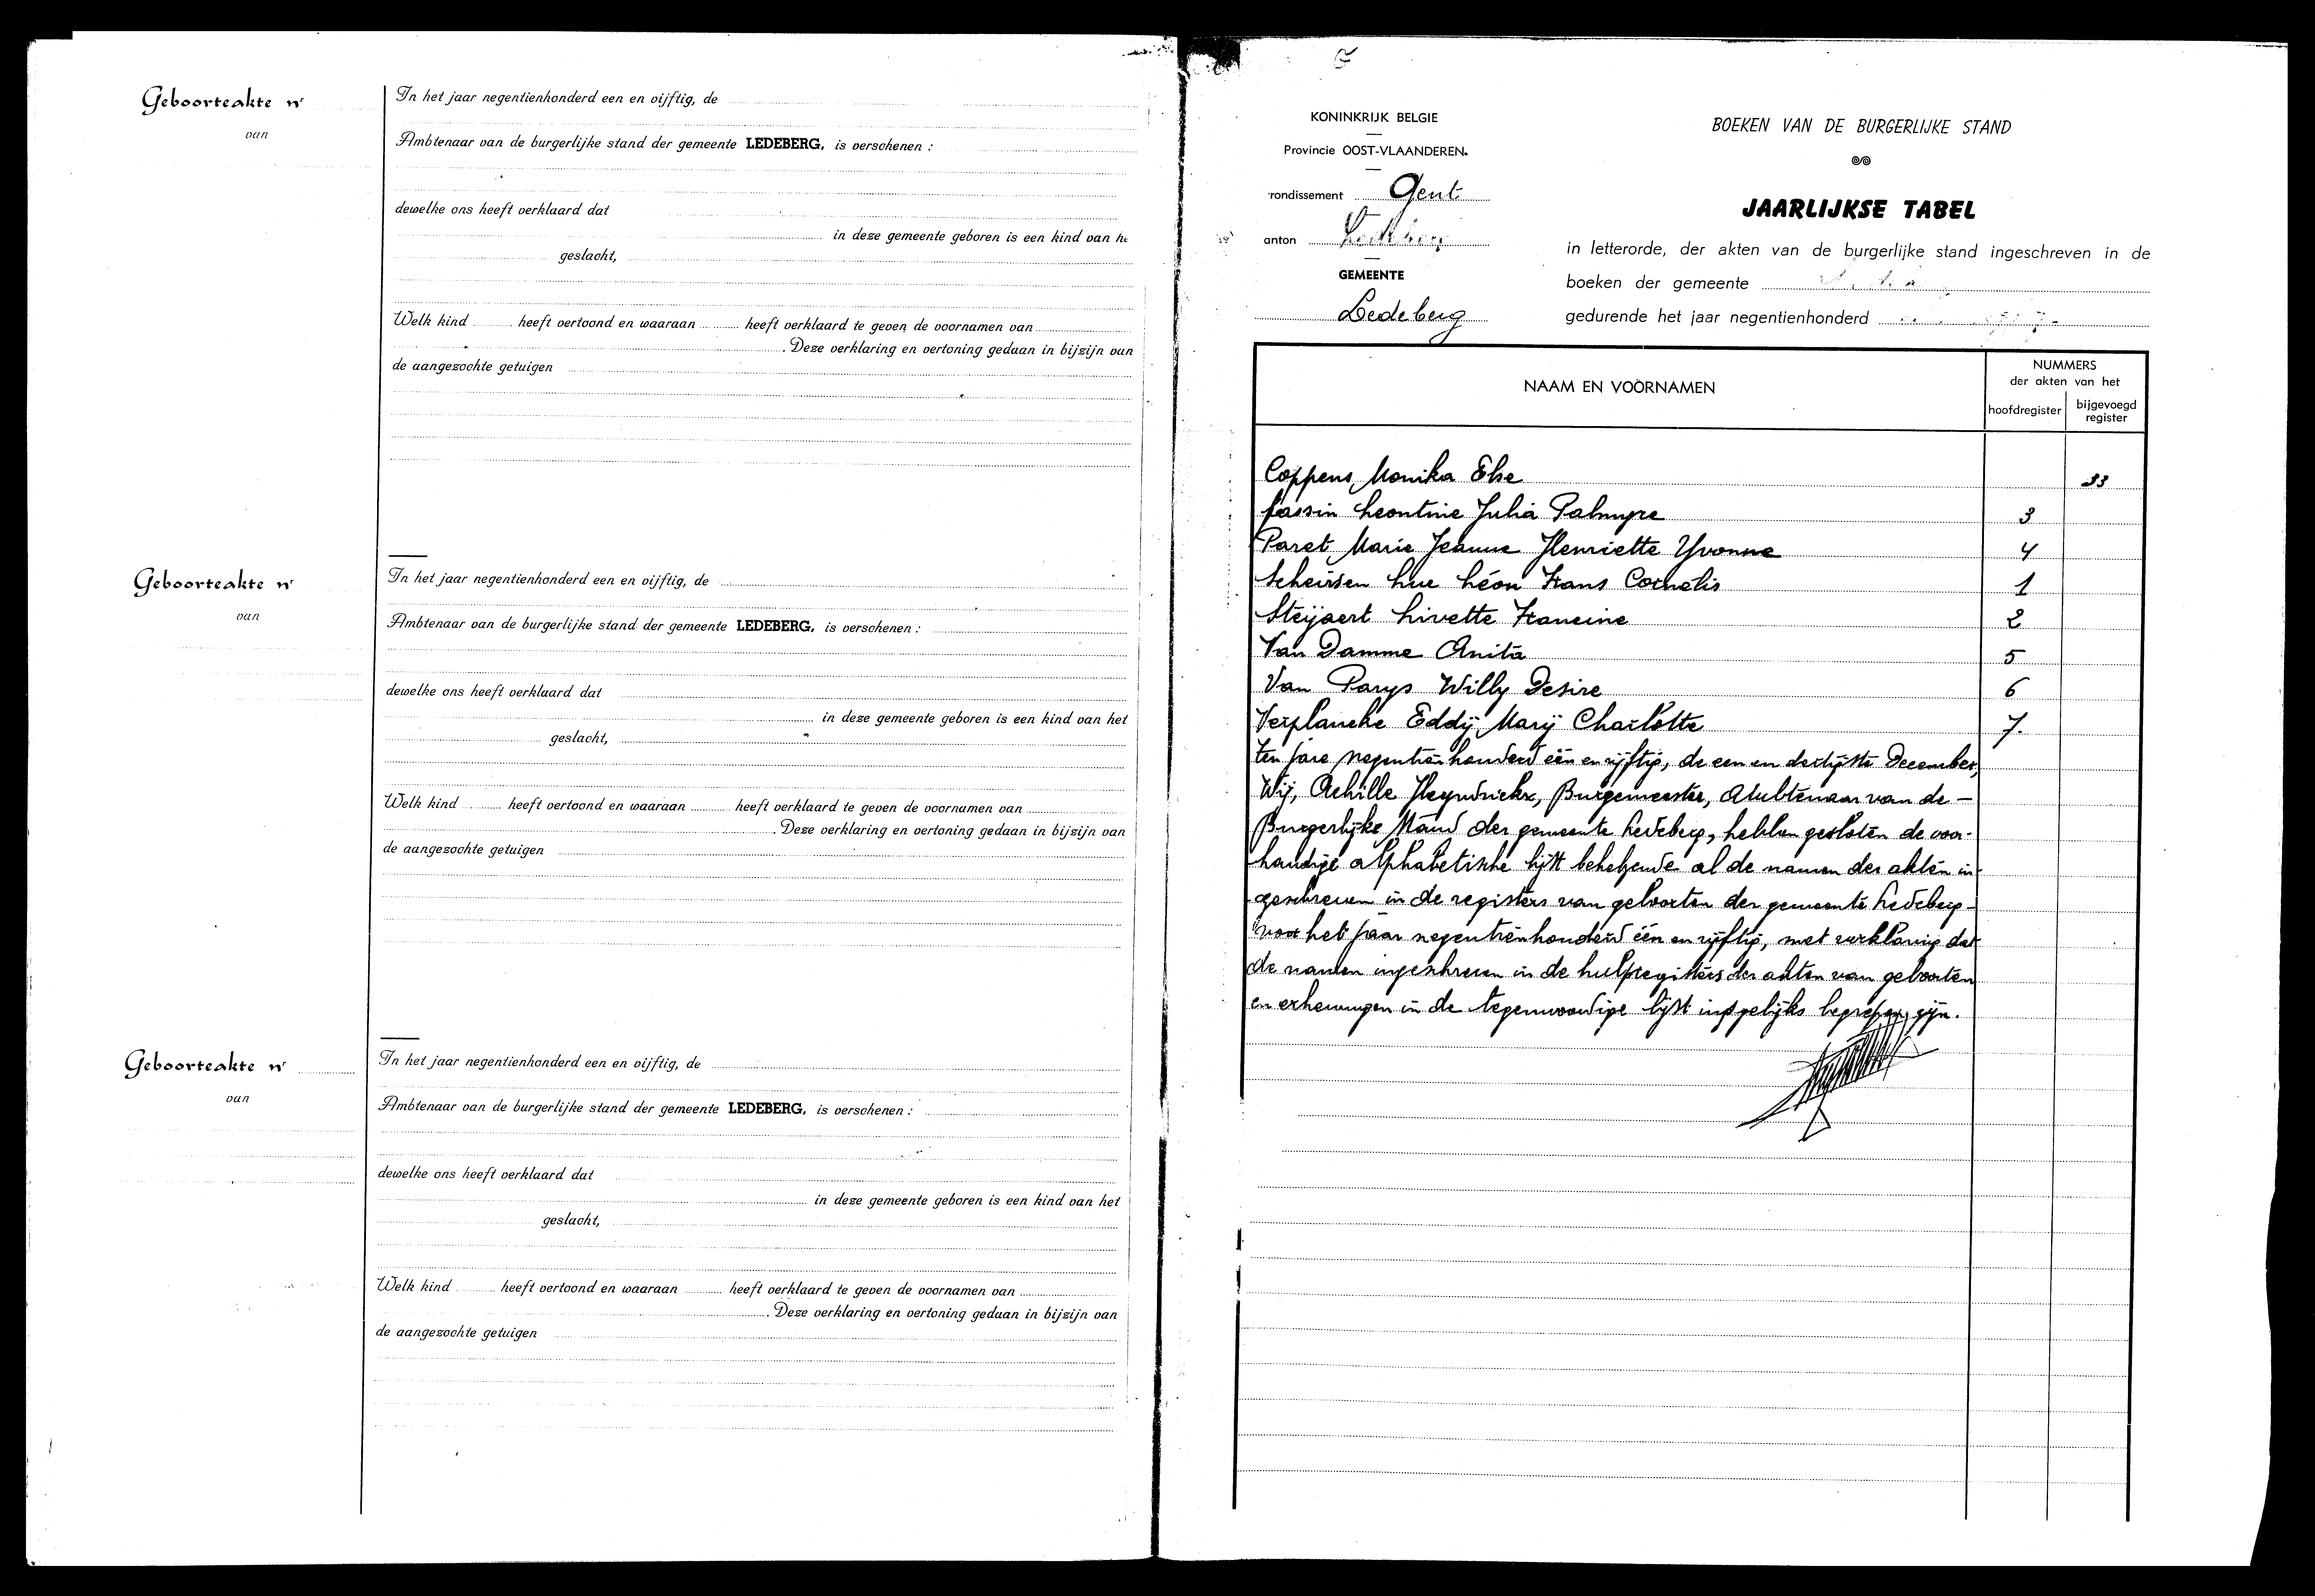 Geboorteakte nr
van
In het jaar negentienhonderd een en vijftig, de
Ambtenaar van de burgerlijke stand der gemeente LEDEBERG, is verschenen :
dewelke ons heeft verklaard dat
in deze gemeente geboren is een kind van he
geslacht,
Welk kind heeft vertoond en waaraan heeft verklaard te geven de voornamen van
. Deze verklaring en vertoning gedaan in bijzijn van
de aangezochte getuigen
Geboorteakte nr
van
In het jaar negentienhonderd een en vijftig, de
Ambtenaar van de burgerlijke stand der gemeente LEDEBERG, is verschenen :
dewelke ons heeft verklaard dat
in deze gemeente geboren is een kind van het
geslacht,
Welk kind heeft vertoond en waaraan heeft verklaard te geven de voornamen van
. Deze verklaring en vertoning gedaan in bijzijn van
de aangezochte getuigen
Geboorteakte nr
van
In het jaar negentienhonderd een en vijftig, de
Ambtenaar van de burgerlijke stand der gemeente LEDEBERG, is verschenen :
dewelke ons heeft verklaard dat
in deze gemeente geboren is een kind van het
geslacht,
Welk kind heeft vertoond en waaraan heeft verklaard te geven de voornamen van
. Deze verklaring en vertoning gedaan in bijzijn van
de aangezochte getuigen
KONINKRIJK BELGIE
Provincie OOST-VLAANDEREN.
rondissement Gent
anton Ledeberg
GEMEENTE
Ledeberg
BOEKEN VAN DE BURGERLIJKE STAND
JAARLIJKSE TABEL
in letterorde, der akten van de burgerlijke stand ingeschreven in de
boeken der gemeente
gedurende het jaar negentienhonderd
NAAM EN VOORNAMEN
NUMMERS
der akten van het
hoofdregister
bijgevoegd register
Coppens Monika Else 33
Leontine Julia Palmyre 3
Paret Marie Jeanne Henriette Yvonne 4
Scheirsen Luc Léon Frans Cornelis 1
Steyaert Livette Francine 2
Van Damme Anita 5
Van Parys Willy Desire 6
Verplancke Eddÿ Marÿ Charlotte 7.
Ten jare negentienhonderd één en vijftig, de een en dertigste December,
Wij, Achille Heyndrickx, Burgemeester, Ambtenaar van de -
Burgerlijke Stand der gemeente Ledeberg, hebben gesloten de voor-
handige alphabetische lijst behelzende al de namen der akten in-
geschreven in de registers van geboorten der gemeente Ledeberg -
voor het jaar negentienhonderd één en vijftig, met verklaring dat
de namen ingeschreven in de hulpregisters der akten van geboorten
en erkenningen in de tegenwoordige lijst insgelijks begrepen zijn.